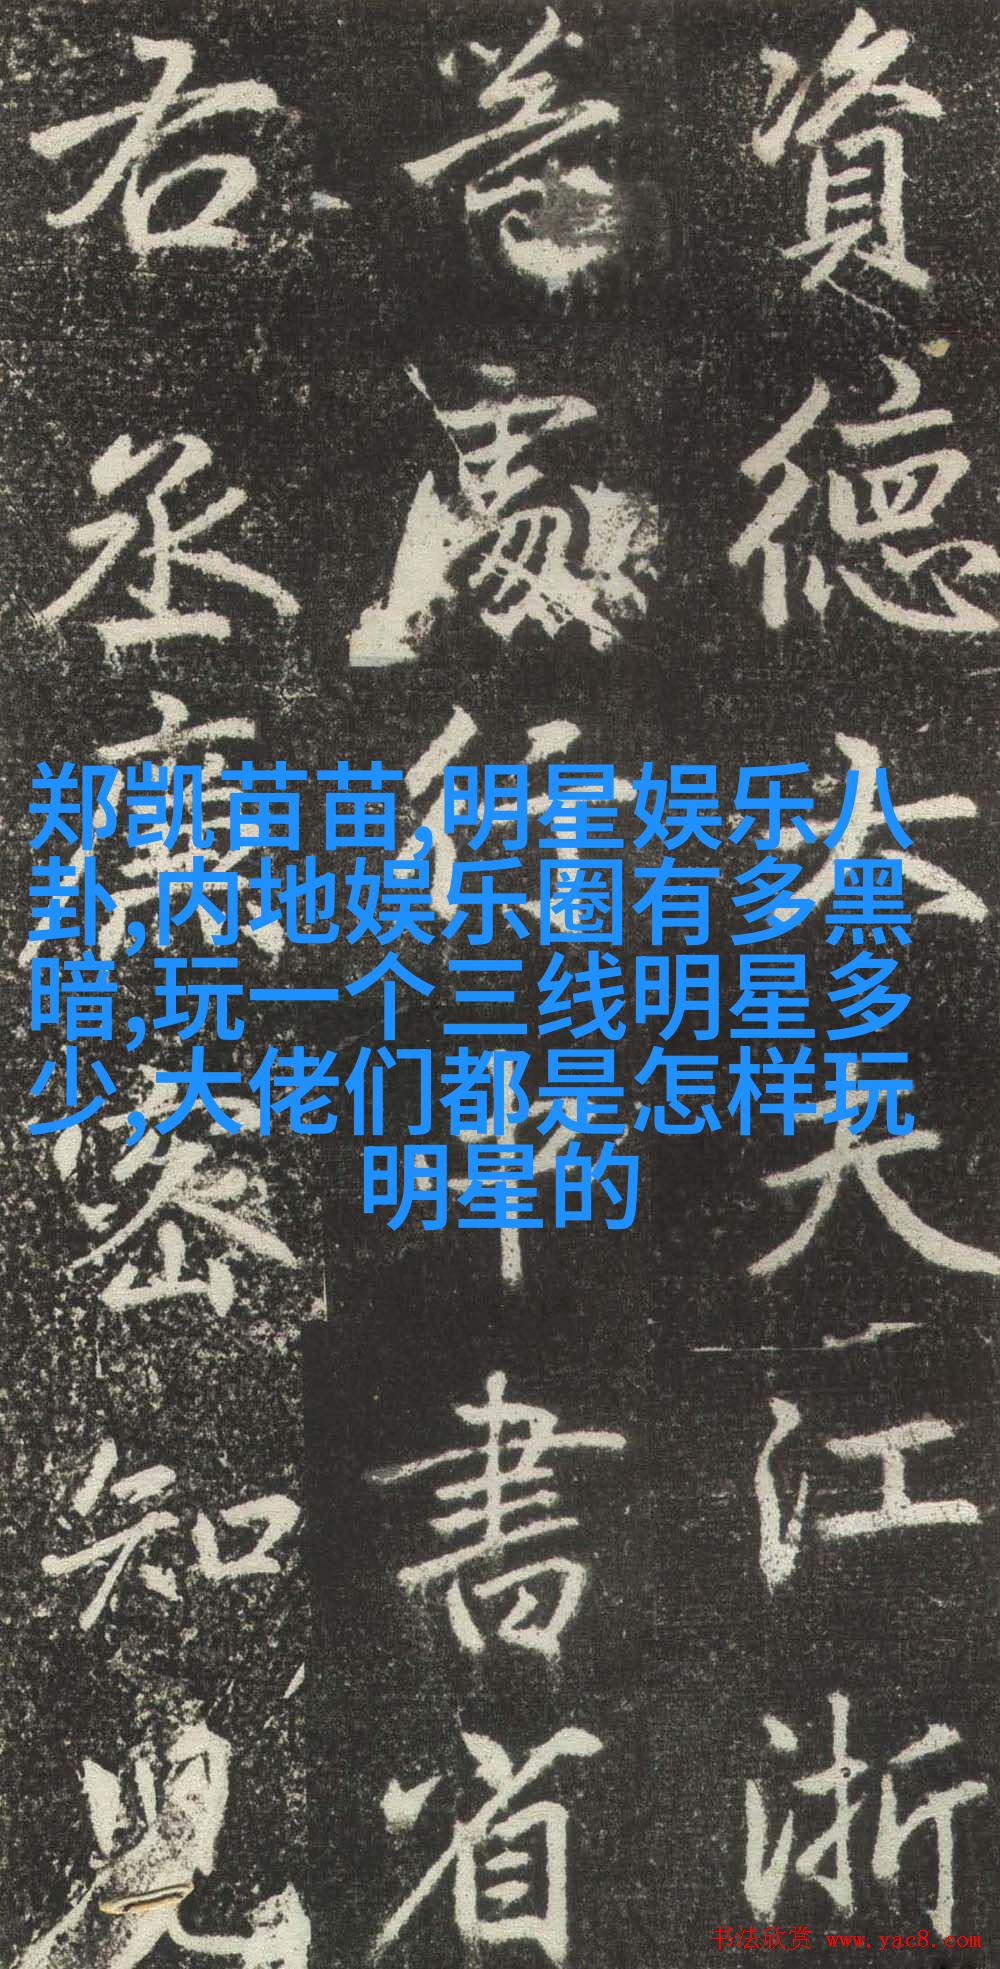 資德大夫江浙
等處行中書省
右丞廉密知兒
郑凯苗苗,明星娱乐八
卦,内地娱乐圈有多黑
暗,玩一个三线明星多
少,大佬们都是怎样玩
明星的
书法欣赏 www.yac8.com